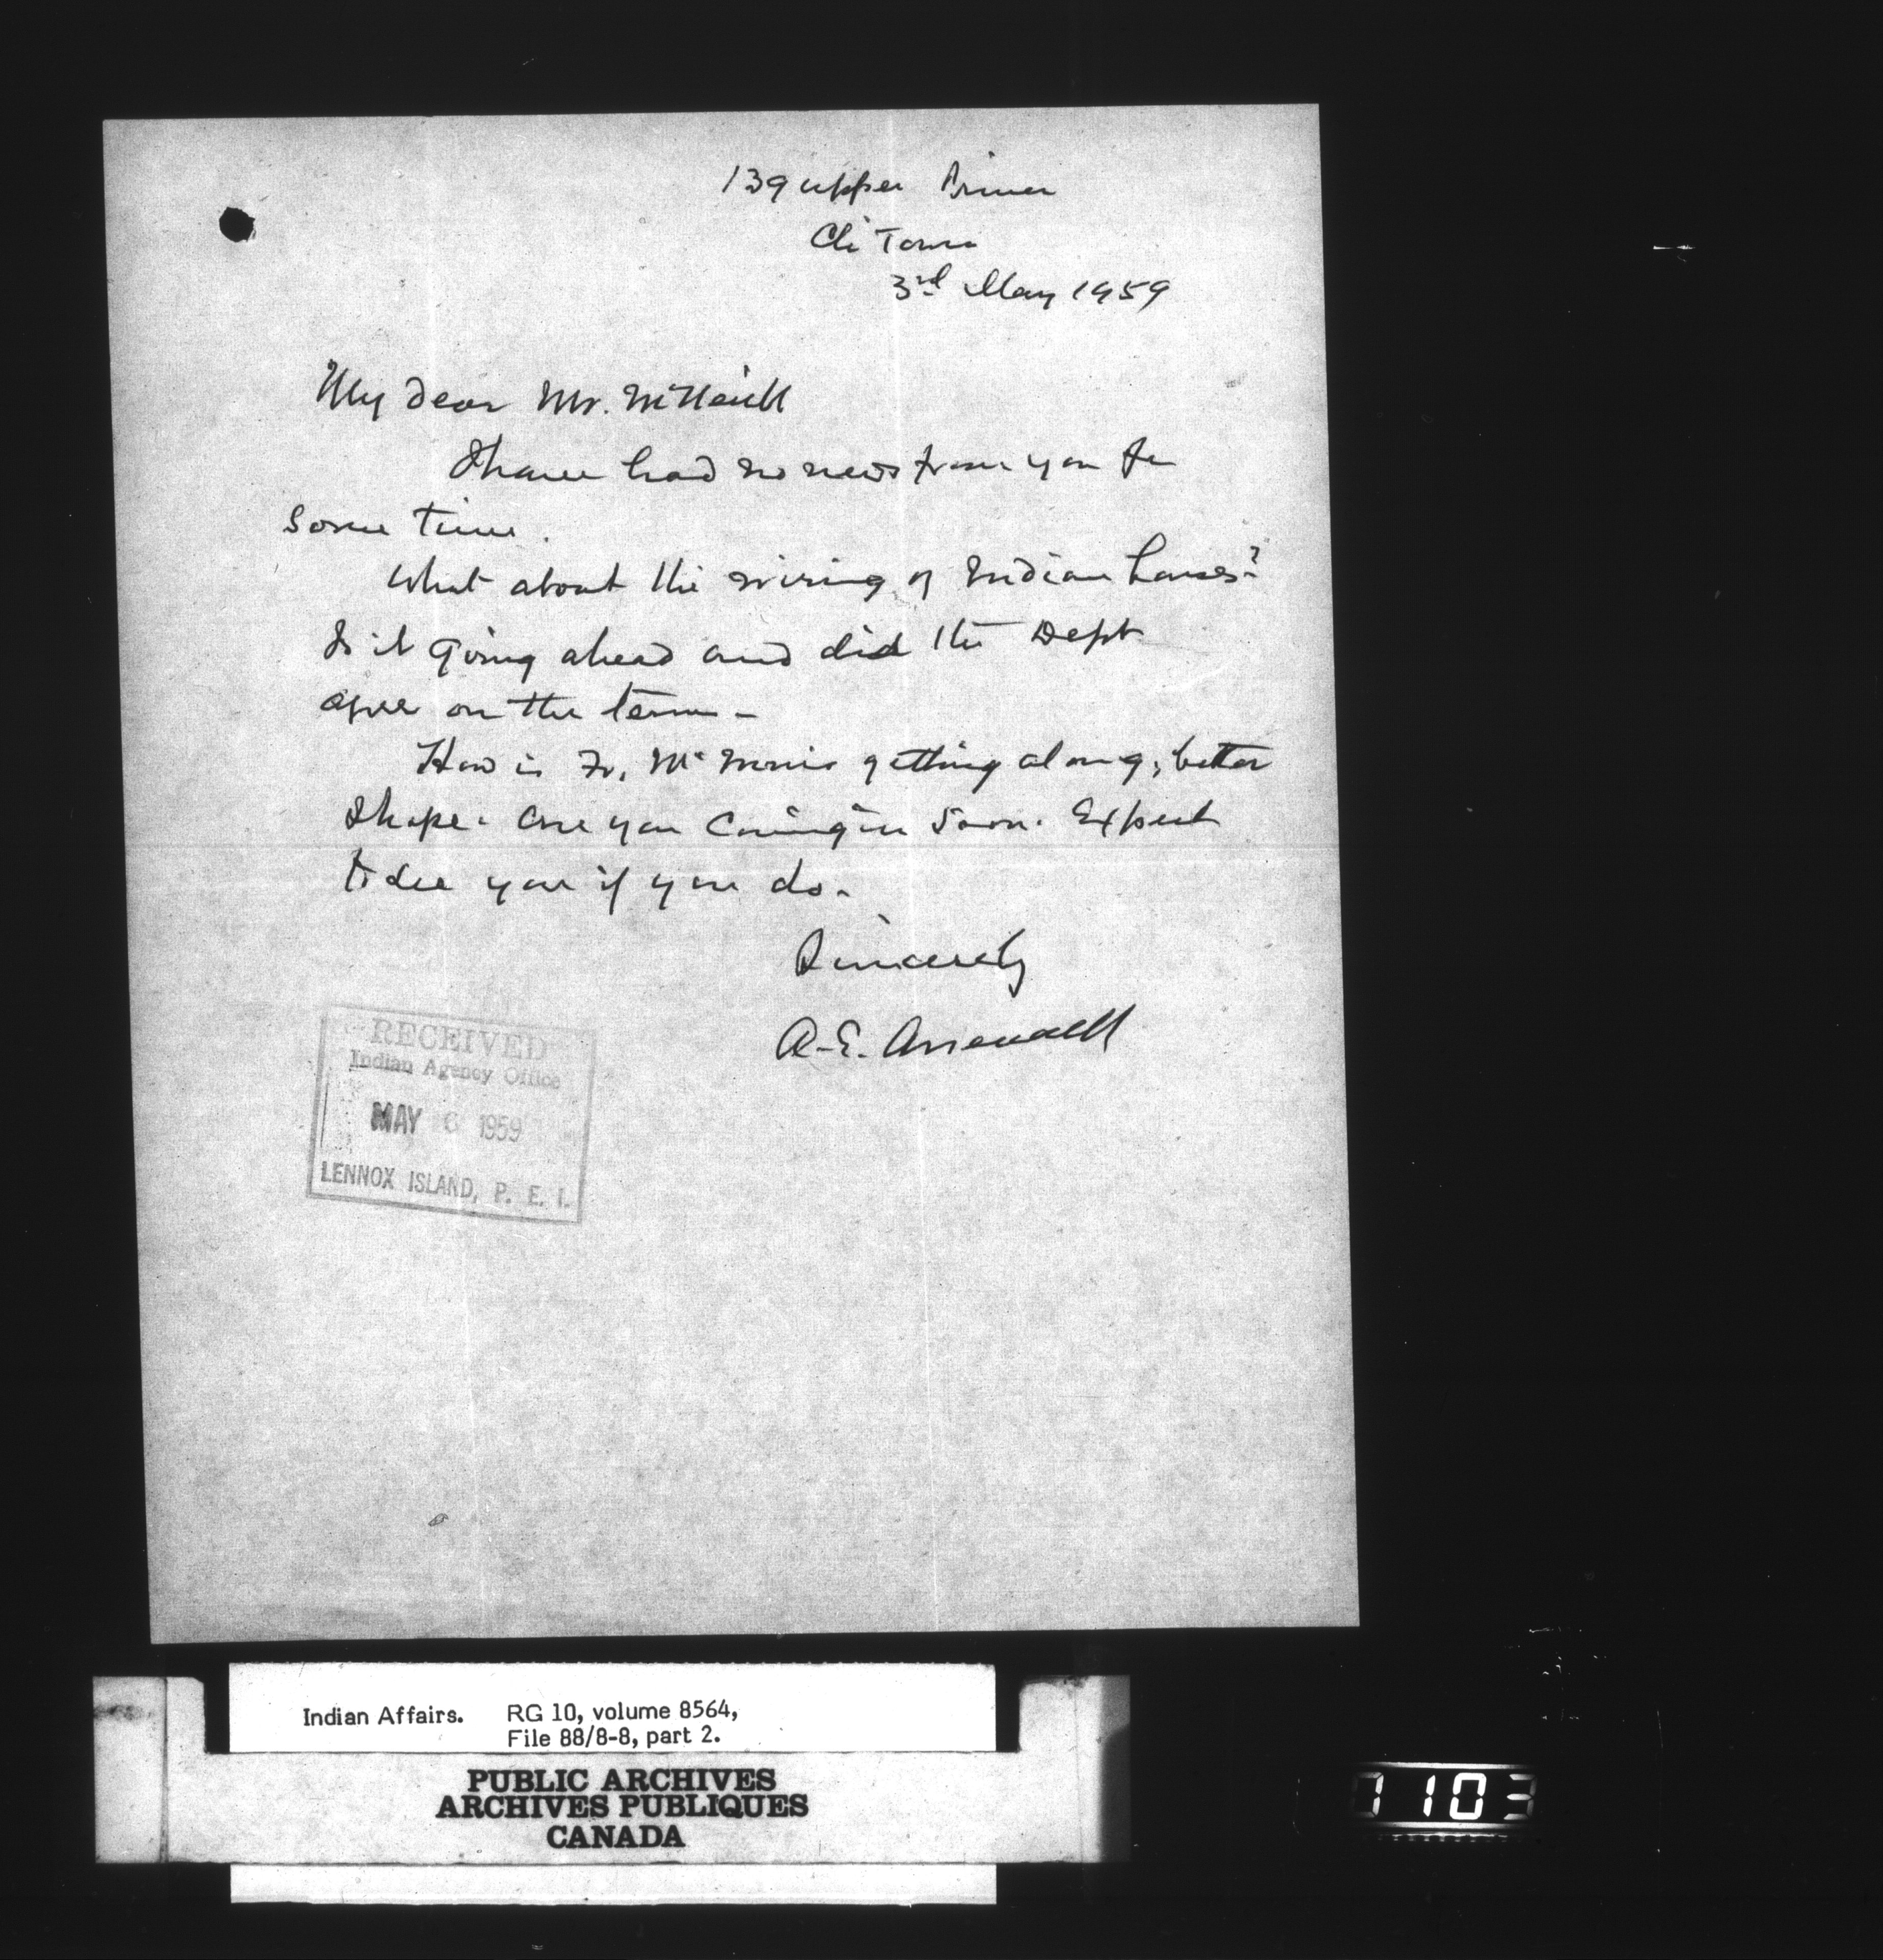 139 upper Prince
Ch Town
3rd May 1959
My dear Mr. McNeill
I have had no news from you for
some time.
What about the wiring of Indian houses?
Is it going ahead and did the Dept
agree on the terms -
How is Fr. getting along, better
I hope. Are you coming in soon. Expect
to see you if you do.
Sincerely
A. E. Arsenault
RECEIVED
Indian Agency Office
MAY 6 1959
LENNOX ISLAND, P. E. I.
Indian Affairs. RG 10, volume 8564,
File 88/8-8, part 2.
PUBLIC ARCHIVES
ARCHIVES PUBLIQUES
CANADA
7103